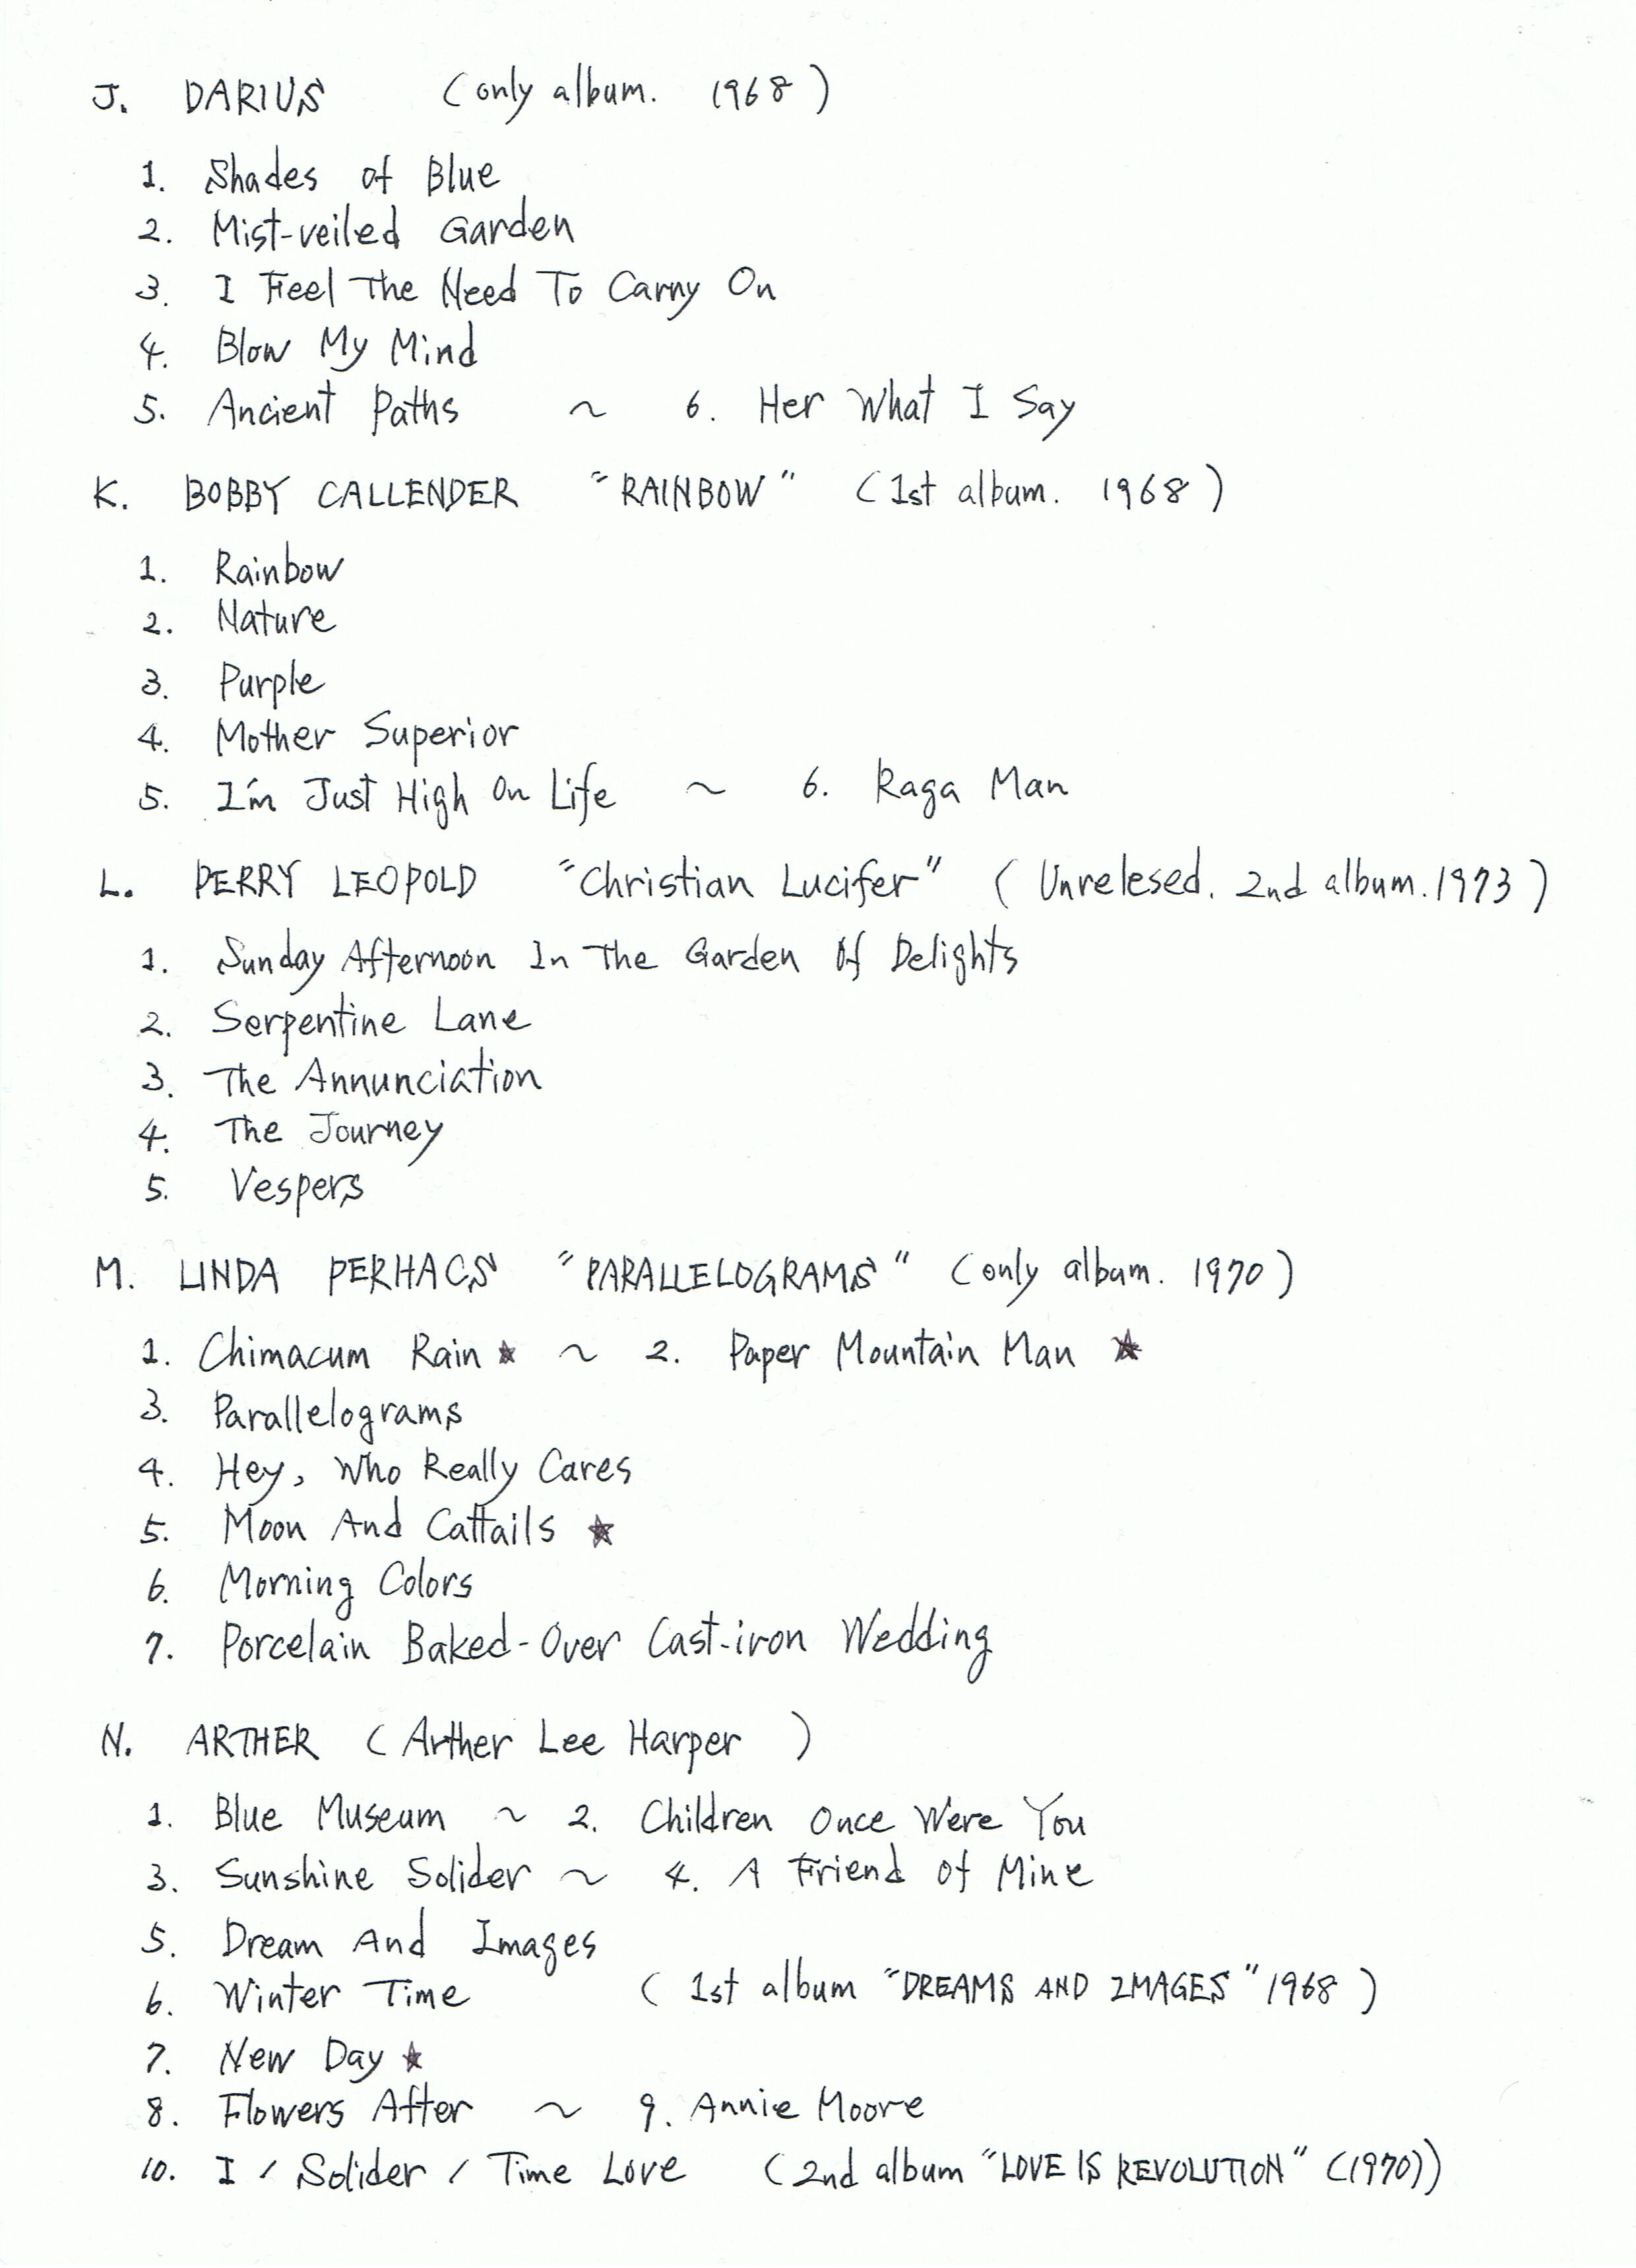 J. DARIUS (only album. 1968)
1. Shades of Blue
2. Mist-veiled Garden
3. I Feel The Need To Carry On
4. Blow My Mind
5. Ancient Paths ~ 6. Her What I Say
K. BOBBY CALLENDER "RAINBOW" (1st album. 1968)
1. Rainbow
2. Nature
3. Purple
4. Mother Superior
5. I'm Just High On Life ~ 6. Raga Man
L. PERRY LEOPOLD "Christian Lucifer" (Unrelesed. 2nd album. 1973)
1. Sunday Afternoon In The Garden Of Delights
2. Serpentine Lane
3. The Annunciation
4. The Journey
5. Vespers
M. LINDA PERHACS "PARALLELOGRAMS" (only album. 1970)
1. Chimacum Rain ★ ~ 2. Paper Mountain Man ★
3. Parallelograms
4. Hey, Who Really Cares
5. Moon And Cattails ★
6. Morning Colors
7. Porcelain Baked-Over Cast-iron Wedding
N. ARTHER (Arther Lee Harper)
1. Blue Museum ~ 2. Children Once Were You
3. Sunshine Solider ~ 4. A Friend of Mine
5. Dream And Images
6. Winter Time (1st album "DREAMS AND IMAGES" 1968)
7. New Day ★
8. Flowers After ~ 9. Annie Moore
10. I / Solider / Time Love (2nd album "LOVE IS REVOLUTION" (1970))